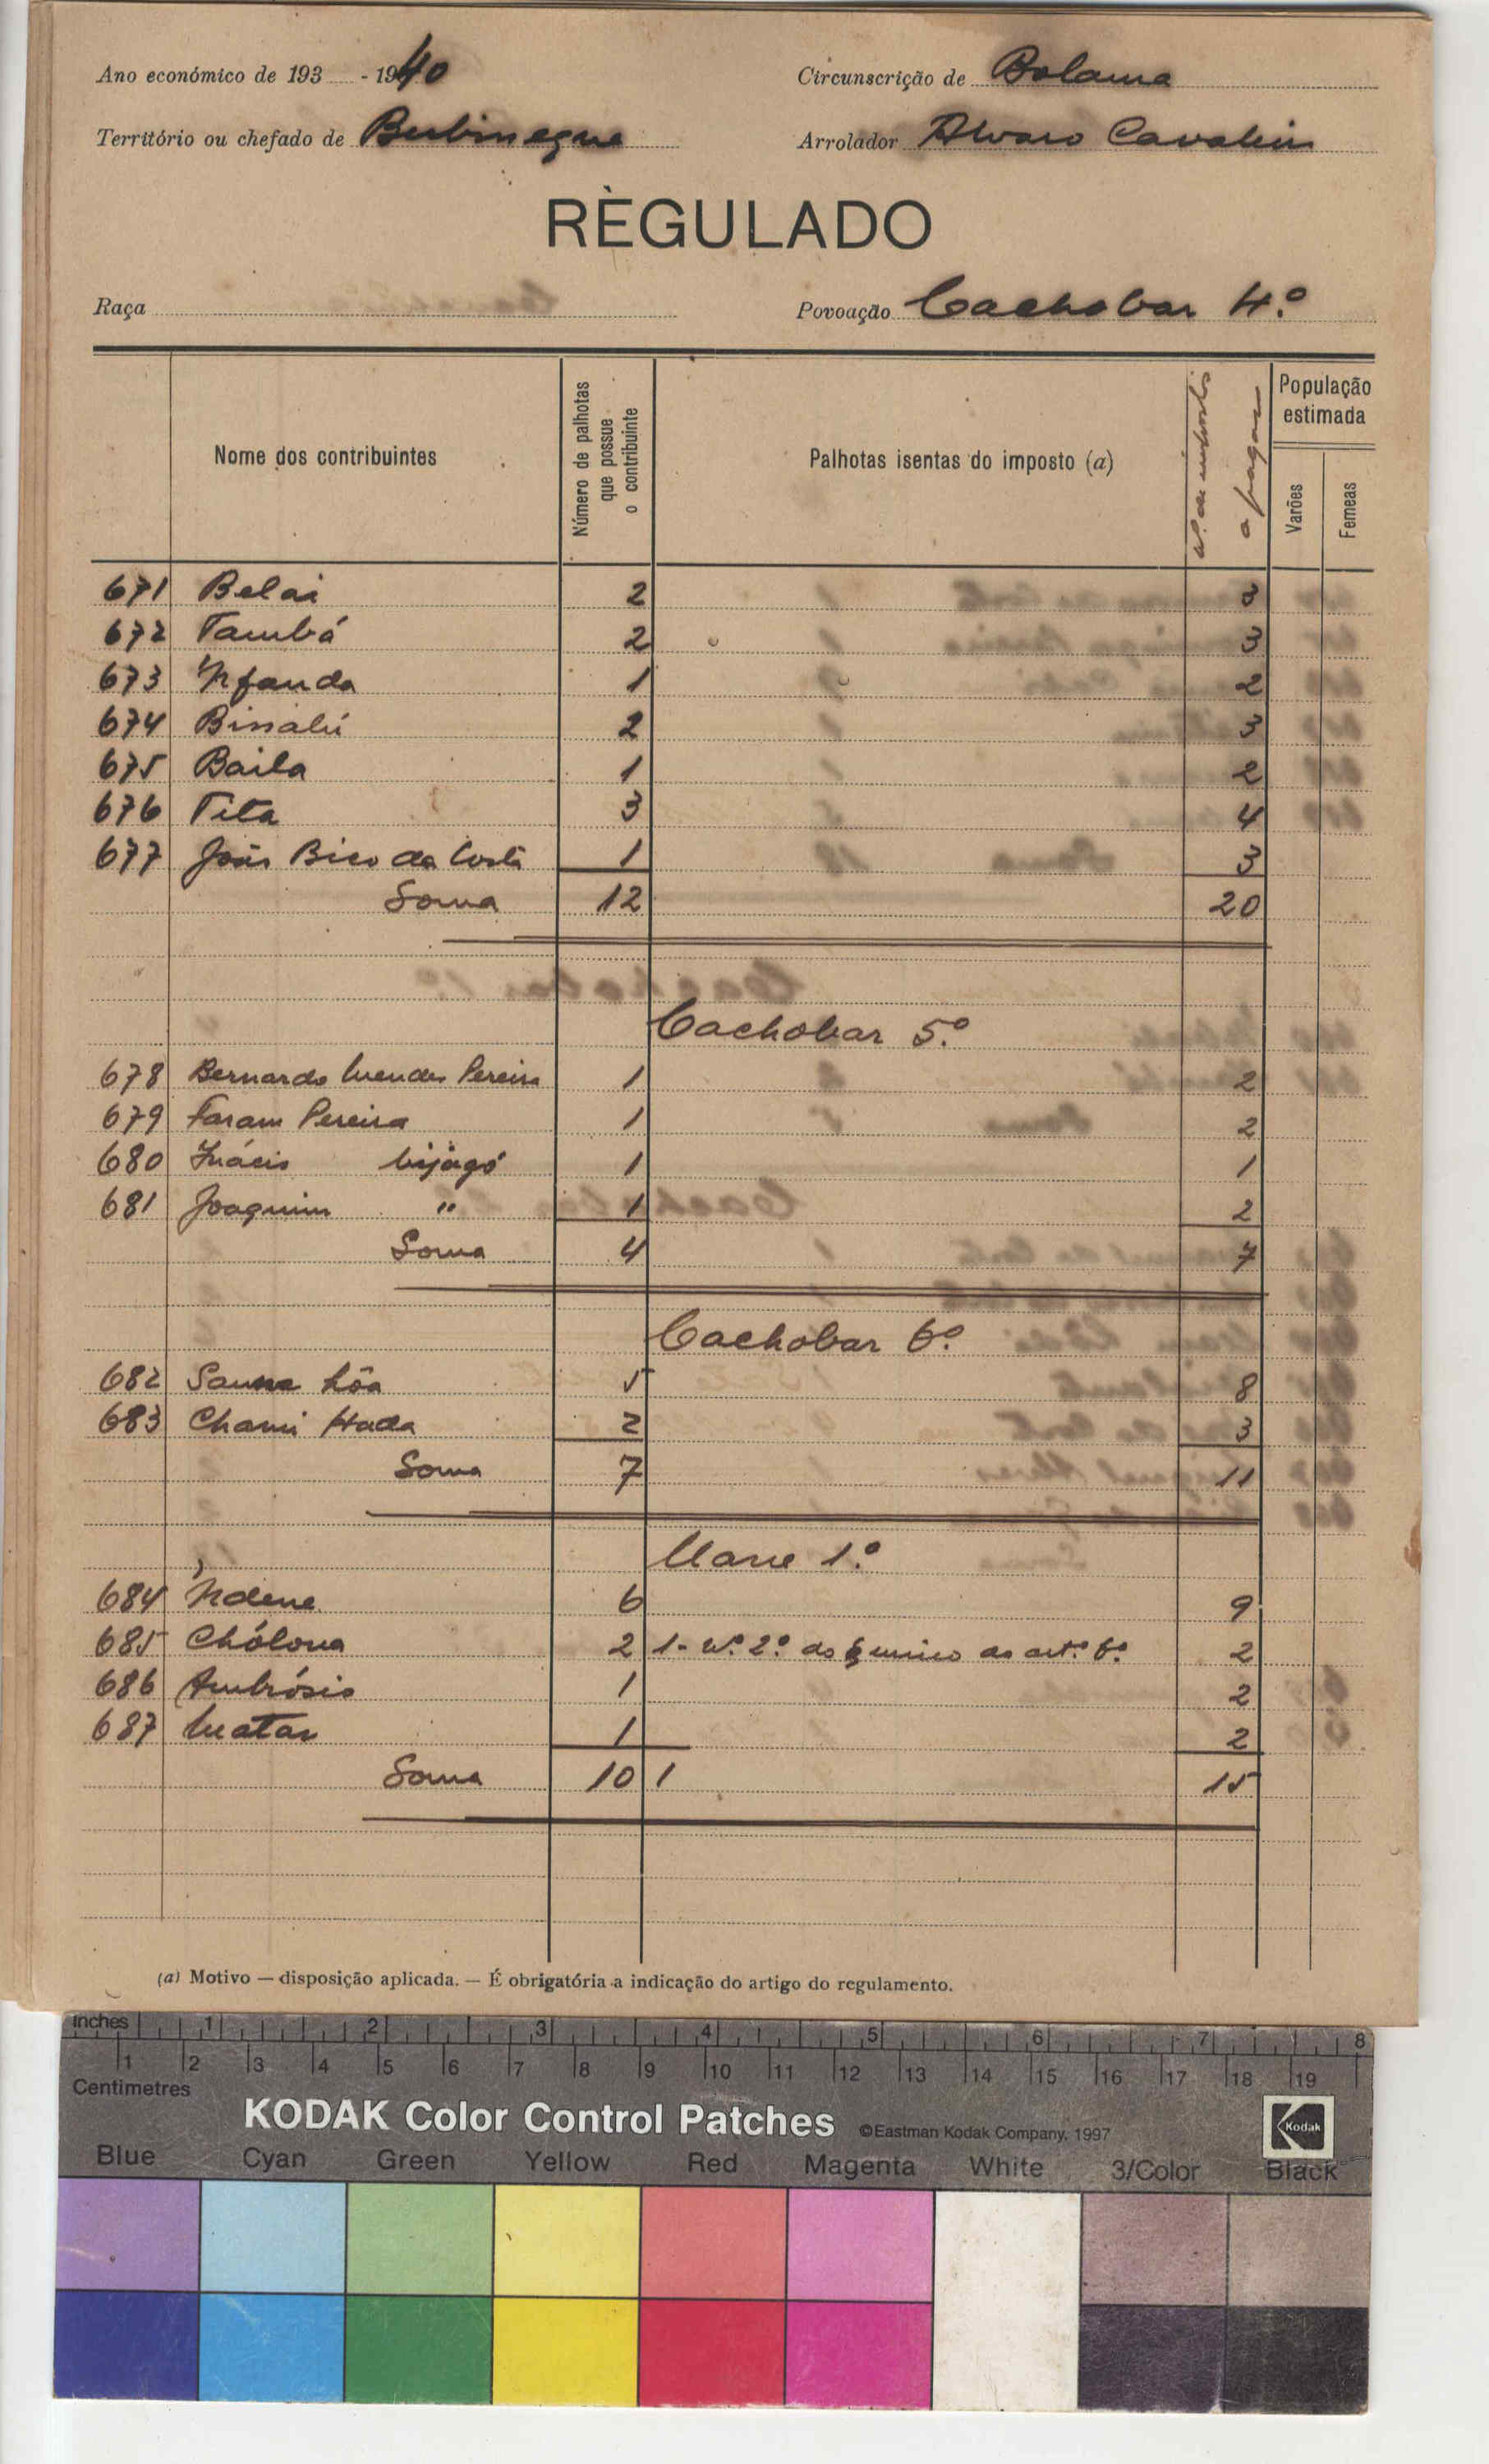 Ano económico de 193 - 1940 Circunscrição de Bolama
Território ou chefado de Bubineque Arrolador Alvaro
RÈGULADO
Raça Povoação Cachobar 4.º
Nome dos contribuintes Número de palhotas que possue o contribuinte Palhotas isentas do imposto (a) N.º de impostos a pagar População estimada Varões Femeas
671 Belai 2 3
672 Tambá 2 3
673 N'fanda 1 2
674 2 3
675 Baila 1 2
676 Tita 3 4
677 João Bico da Costa 1 3
Soma 12 20
Cachobar 5.º
678 Bernardo Mendes Pereira 1 2
679 Faram Pereira 1 2
680 Inácio bijagó 1 1
681 Joaquim " 1 2
Soma 4 7
Cachobar 6.º
682 5 8
683 Chami Hada 2 3
Soma 7 11
1.º
684 N'dene 6 9
685 Chólona 2 1 - N.º 2.º do § unico do art.º 6.º 2
686 Ambrósio 1 2
687 Matar 1 2
Soma 10 1 15
(a) Motivo — disposição aplicada. — É obrigatória a indicação do artigo do regulamento.
inches 1 2 3 4 5 6 7 8
1 2 3 4 5 6 7 8 9 10 11 12 13 14 15 16 17 18 19
Centimetres
KODAK Color Control Patches ©Eastman Kodak Company, 1997 Kodak
Blue Cyan Green Yellow Red Magenta White 3/Color Black